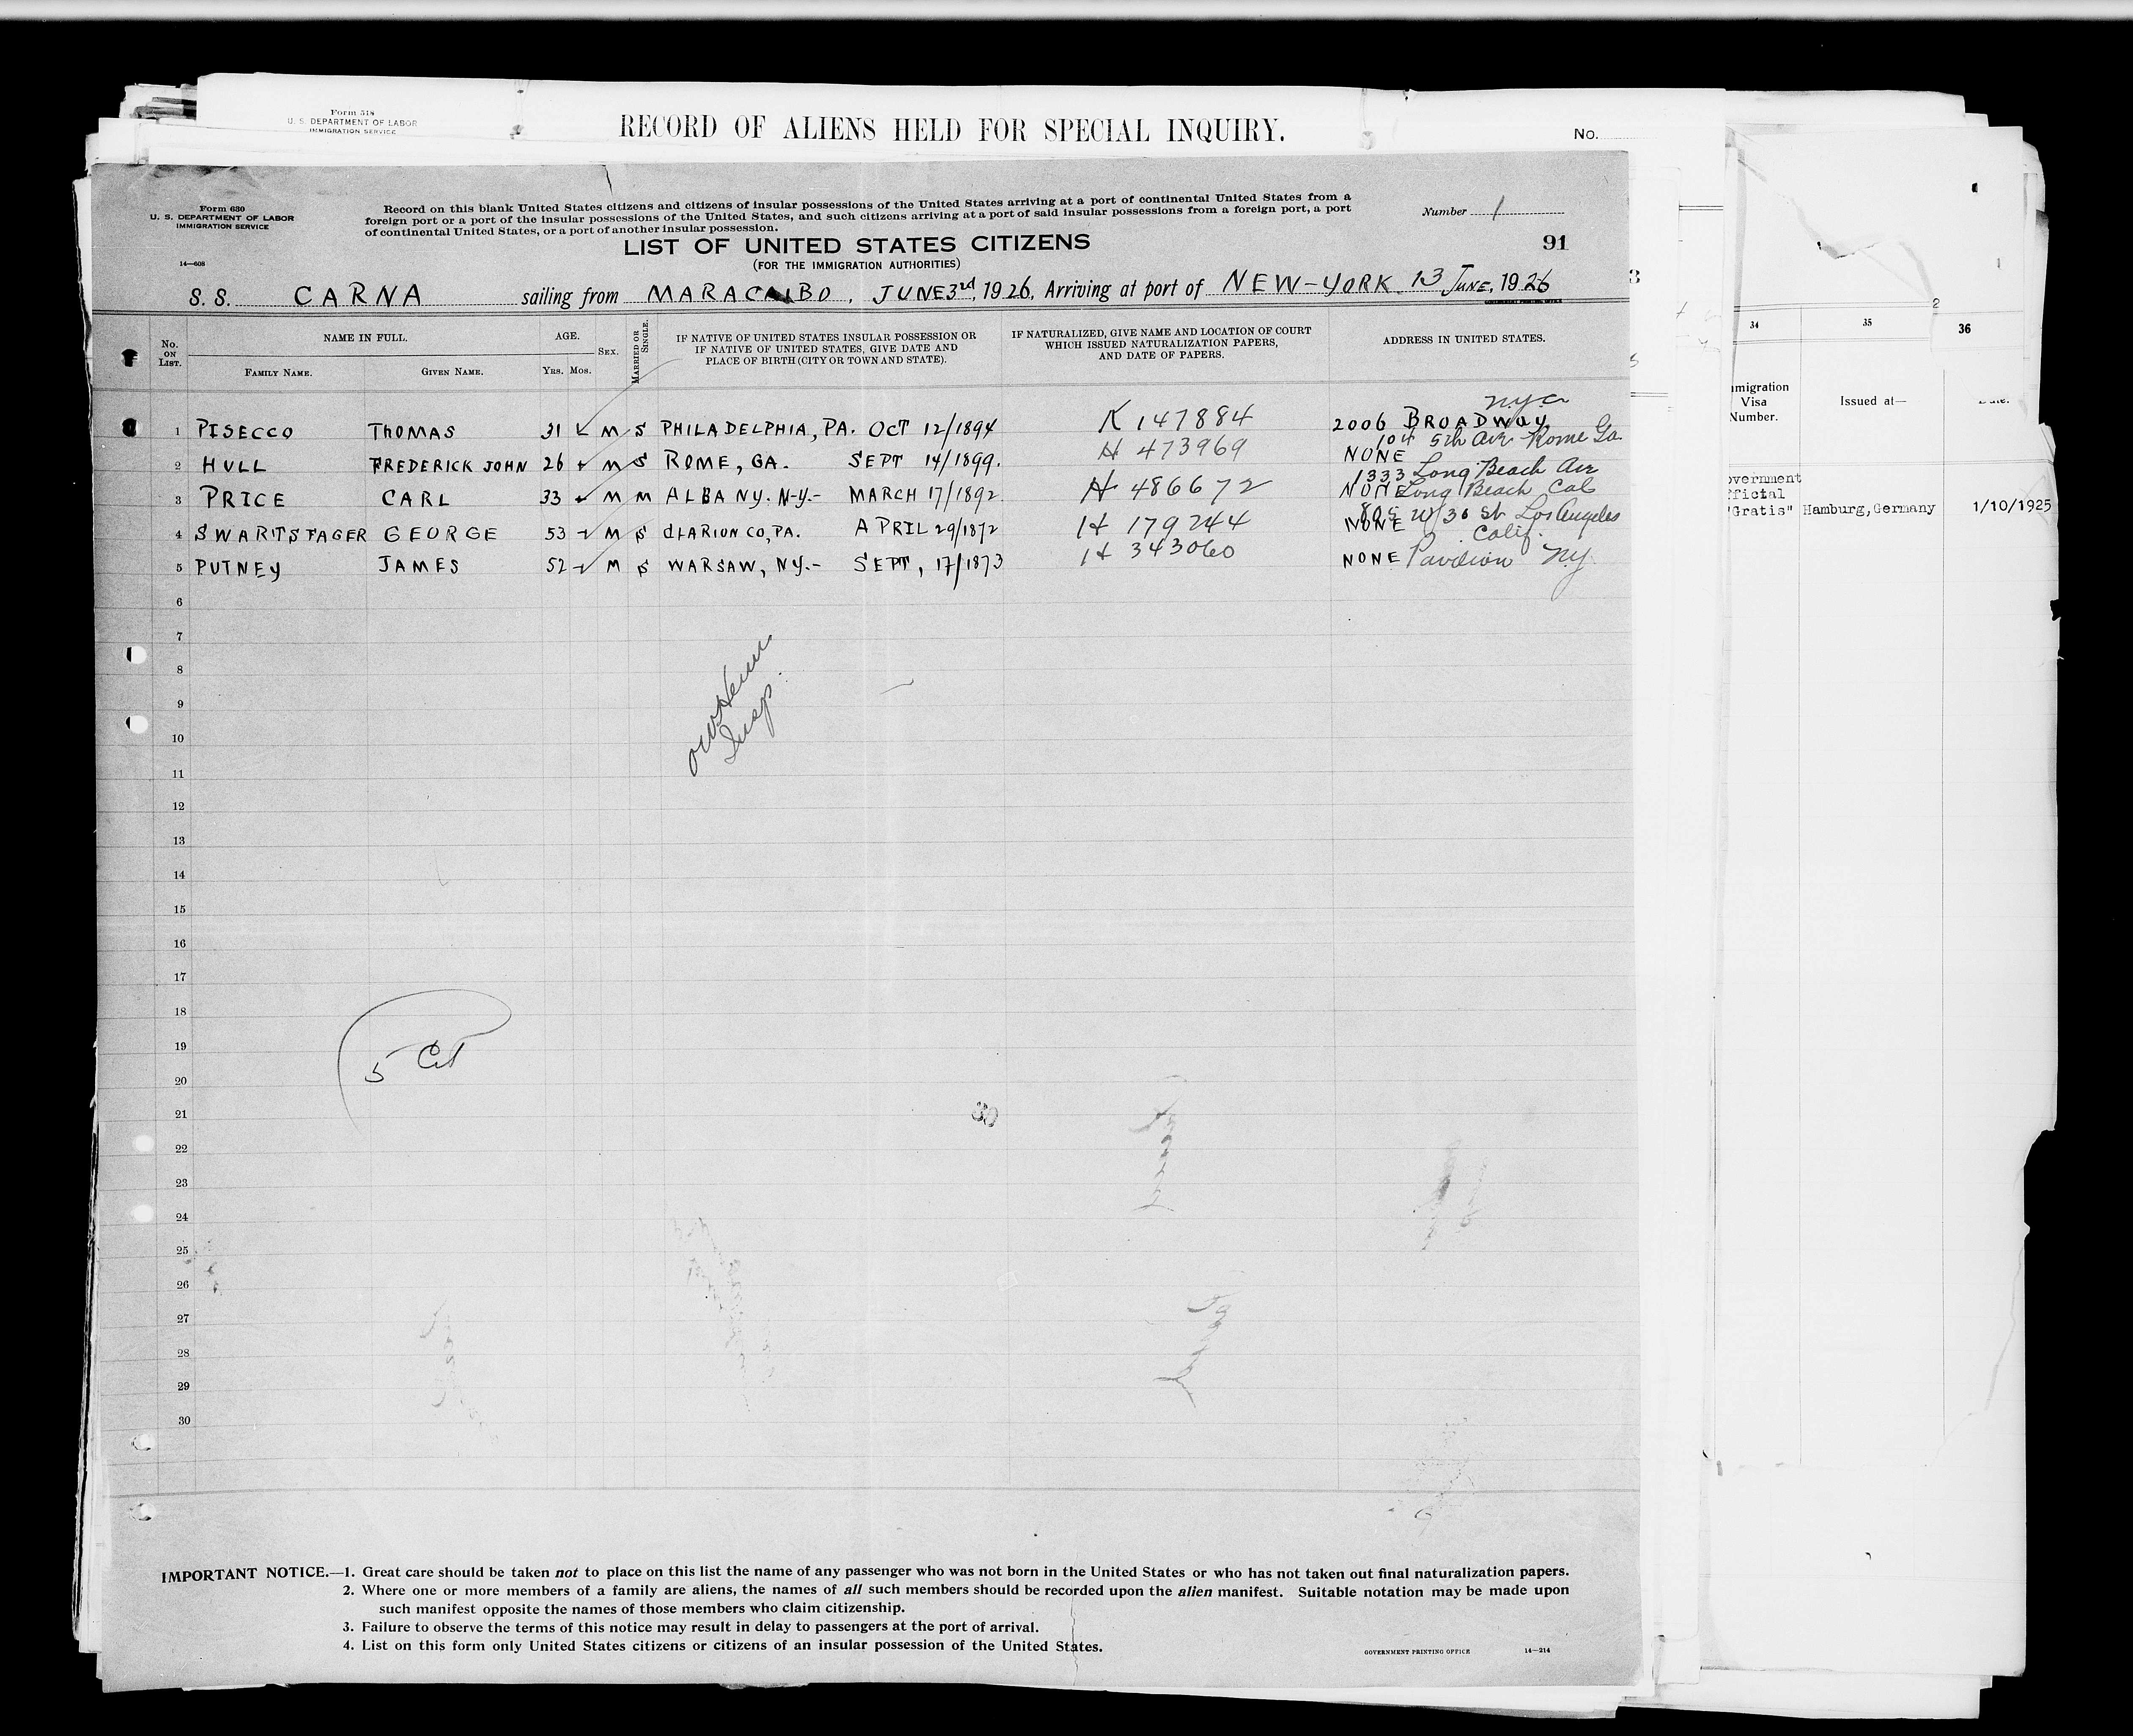 Form 548
U. S. DEPARTMENT OF LABOR
IMMIGRATION SERVICE
RECORD OF ALIENS HELD FOR SPECIAL INQUIRY.
No.
Form 630
U. S. DEPARTMENT OF LABOR
IMMIGRATION SERVICE
14—608
Record on this blank United States citizens and citizens of insular possessions of the United States arriving at a port of continental United States from a
foreign port or a port of the insular possessions of the United States, and such citizens arriving at a port of said insular possessions from a foreign port, a port
of continental United States, or a port of another insular possession.
Number 1
LIST OF UNITED STATES CITIZENS
91
(FOR THE IMMIGRATION AUTHORITIES)
S. S. CARNA sailing from MARACAIBO, JUNE 3rd, 1926, Arriving at port of NEW-YORK 13 JUNE, 1926
No. ON LIST. NAME IN FULL. AGE. SEX. MARRIED OR SINGLE. IF NATIVE OF UNITED STATES INSULAR POSSESSION OR IF NATIVE OF UNITED STATES, GIVE DATE AND PLACE OF BIRTH (CITY OR TOWN AND STATE). IF NATURALIZED, GIVE NAME AND LOCATION OF COURT WHICH ISSUED NATURALIZATION PAPERS, AND DATE OF PAPERS. ADDRESS IN UNITED STATES.
FAMILY NAME. GIVEN NAME. YRS. MOS.
NYC
1 PISECCO THOMAS 31 M S PHILADELPHIA, PA. OCT 12/1894 K 147884 2006 BROADWAY
104 5th Ave Rome Ga.
2 HULL FREDERICK JOHN 26 M S ROME, GA. SEPT 14/1899. H 473969 NONE
1333 Long Beach Ave
3 PRICE CARL 33 M M ALBANY. N-Y.- MARCH 17/1892. H 486672 NONE Long Beach Cal
805 W/36 St Los Angeles
4 SWARTSFAGER GEORGE 53 M S CLARION CO, PA. APRIL 29/1872 H 179244 NONE Calif.
5 PUTNEY JAMES 52 M S WARSAW, NY.- SEPT, 17/1873 H 343060 NONE Pavilion N.Y.
6
7
8
9
10
Insp.
11
12
13
14
15
16
17
18
19
5 Cit
20
21
22
23
24
25
26
27
28
29
30
IMPORTANT NOTICE.—1. Great care should be taken not to place on this list the name of any passenger who was not born in the United States or who has not taken out final naturalization papers.
2. Where one or more members of a family are aliens, the names of all such members should be recorded upon the alien manifest. Suitable notation may be made upon
such manifest opposite the names of those members who claim citizenship.
3. Failure to observe the terms of this notice may result in delay to passengers at the port of arrival.
4. List on this form only United States citizens or citizens of an insular possession of the United States.
GOVERNMENT PRINTING OFFICE 14—214
3
2
34 35 36
mmigration
Visa
Number.
Issued at—
overnment
fficial
"Gratis" Hamburg,Germany 1/10/1925